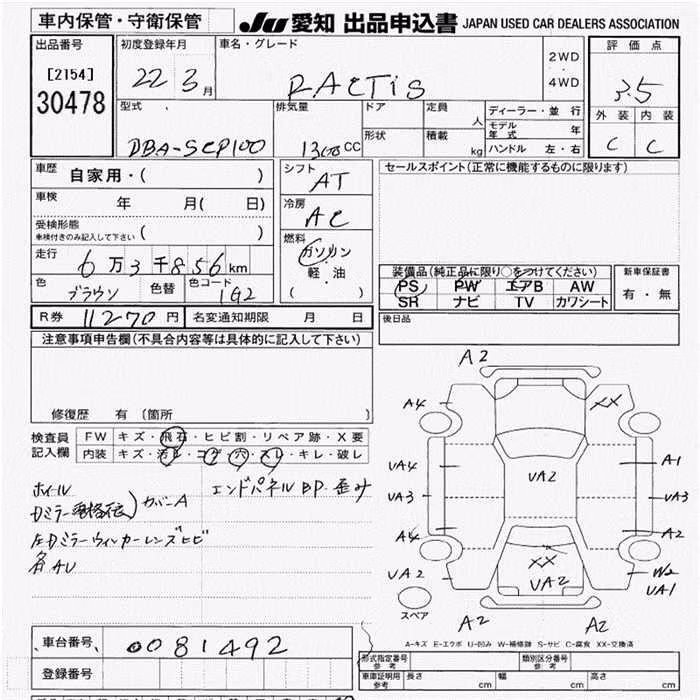 車内保管・守衛保管
JU 愛知 出品申込書 JAPAN USED CAR DEALERS ASSOCIATION
出品番号
[2154]
30478
初度登録年月
22 3月
車名・グレード
RACTIS
2WD
・
4WD
評価点
3.5
外装 内装
C C
型式
DBA-SCP100
排気量
1300CC
ドア
形状
定員 人
積載 kg
ディーラー・並行
モデル年式 年
ハンドル 左・右
車歴 自家用・( )
車検 年 月( 日)
受検形態
車検付きのみ記入して下さい ( )
走行 6万3千856km
色 ブラウン 色替 色コード 1G2
シフト
AT
冷房
AC
燃料
ガソリン
・
軽・油
( )
セールスポイント(正常に機能するものに限ります)
装備品(純正品に限り○をつけてください)
PS PW エアB AW
SR ナビ TV カワシート
新車保証書
有・無
R券 11270円 名変通知期限 月 日
後日品
注意事項申告欄(不具合内容等は具体的に記入して下さい)
修復歴 有(箇所 )
検査員
記入欄
FW キズ・飛石・ヒビ割・リペア跡・X要
内装 キズ・汚レ・コゲ・穴・スレ・キレ・破レ
ホイル
エンドパネルBP.歪み
カバーA
左Dミラーウィンカーレンズヒビ
各AU
A2
A4
XX
UA4
A1
UA2
UA3
UA3
A4
A2
XX
UA2
UA2
W2
UA1
スペア
A2
A2
A-キズ E-エクボ U-凹み W-補修跡 S-サビ C-腐食 XX-交換済
車台番号 0081492
登録番号
形式指定番号 参考
類別区分番号 参考
車庫証明用 参考 長さ cm 幅 cm 高さ cm